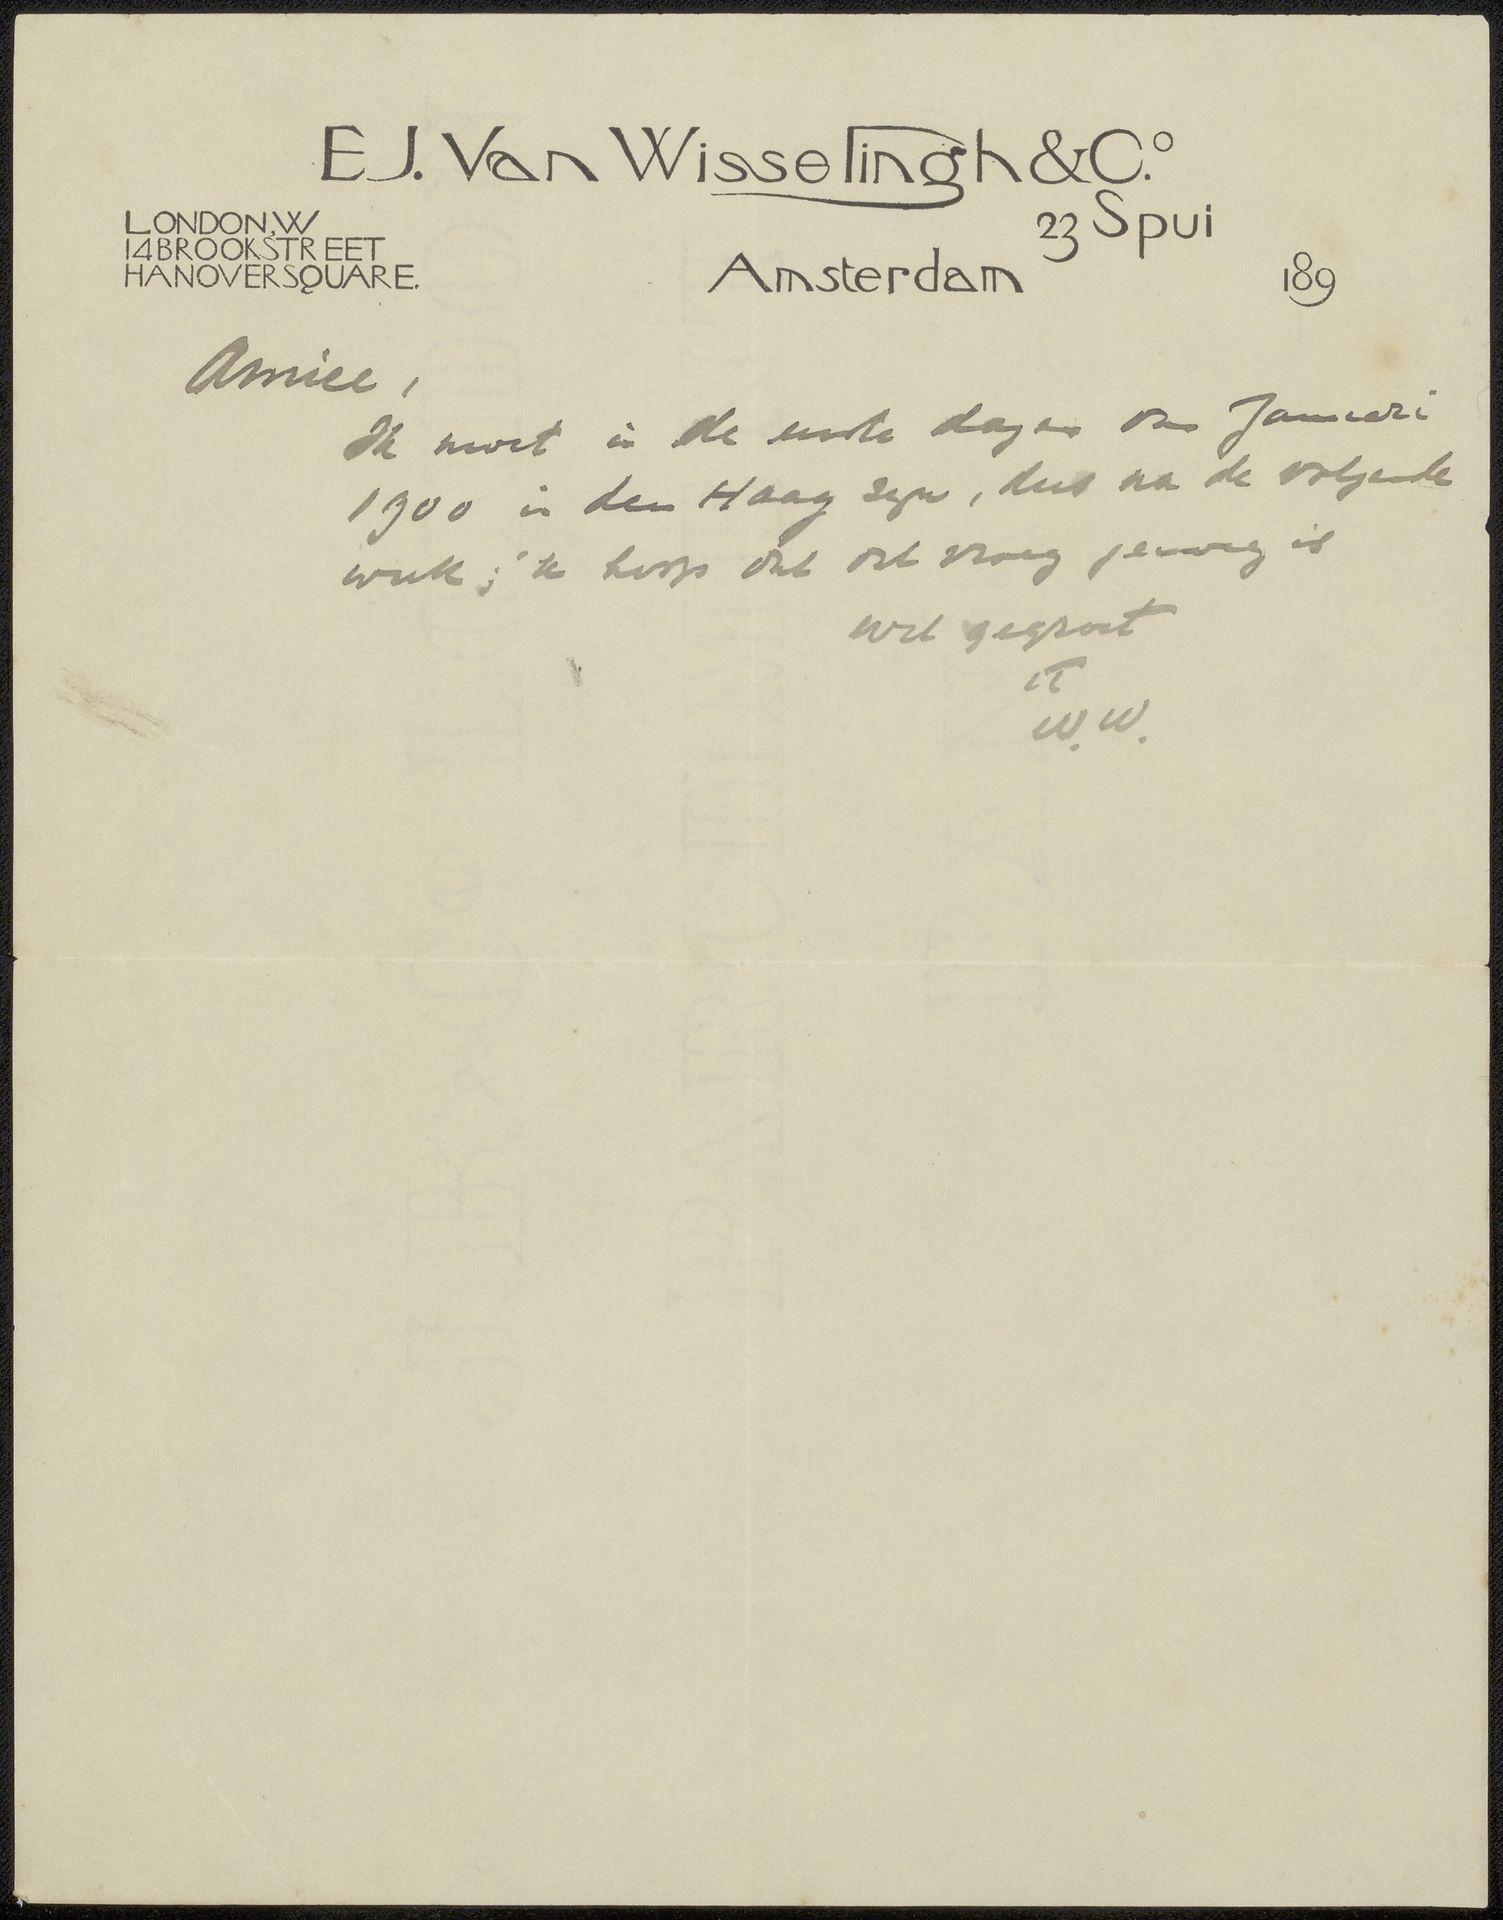 E.J. Van Wisselingh & Co.
LONDON, W
14 BROOKSTREET
HANOVERSQUARE.
23 Spui
Amsterdam
189
Amice,
Ik moet in de eerste dagen van Januari
1900 in den Haag zijn, dus na de volgende
week; ik hoop dat dat vroeg genoeg is
wel gegroet
tt
W.W.